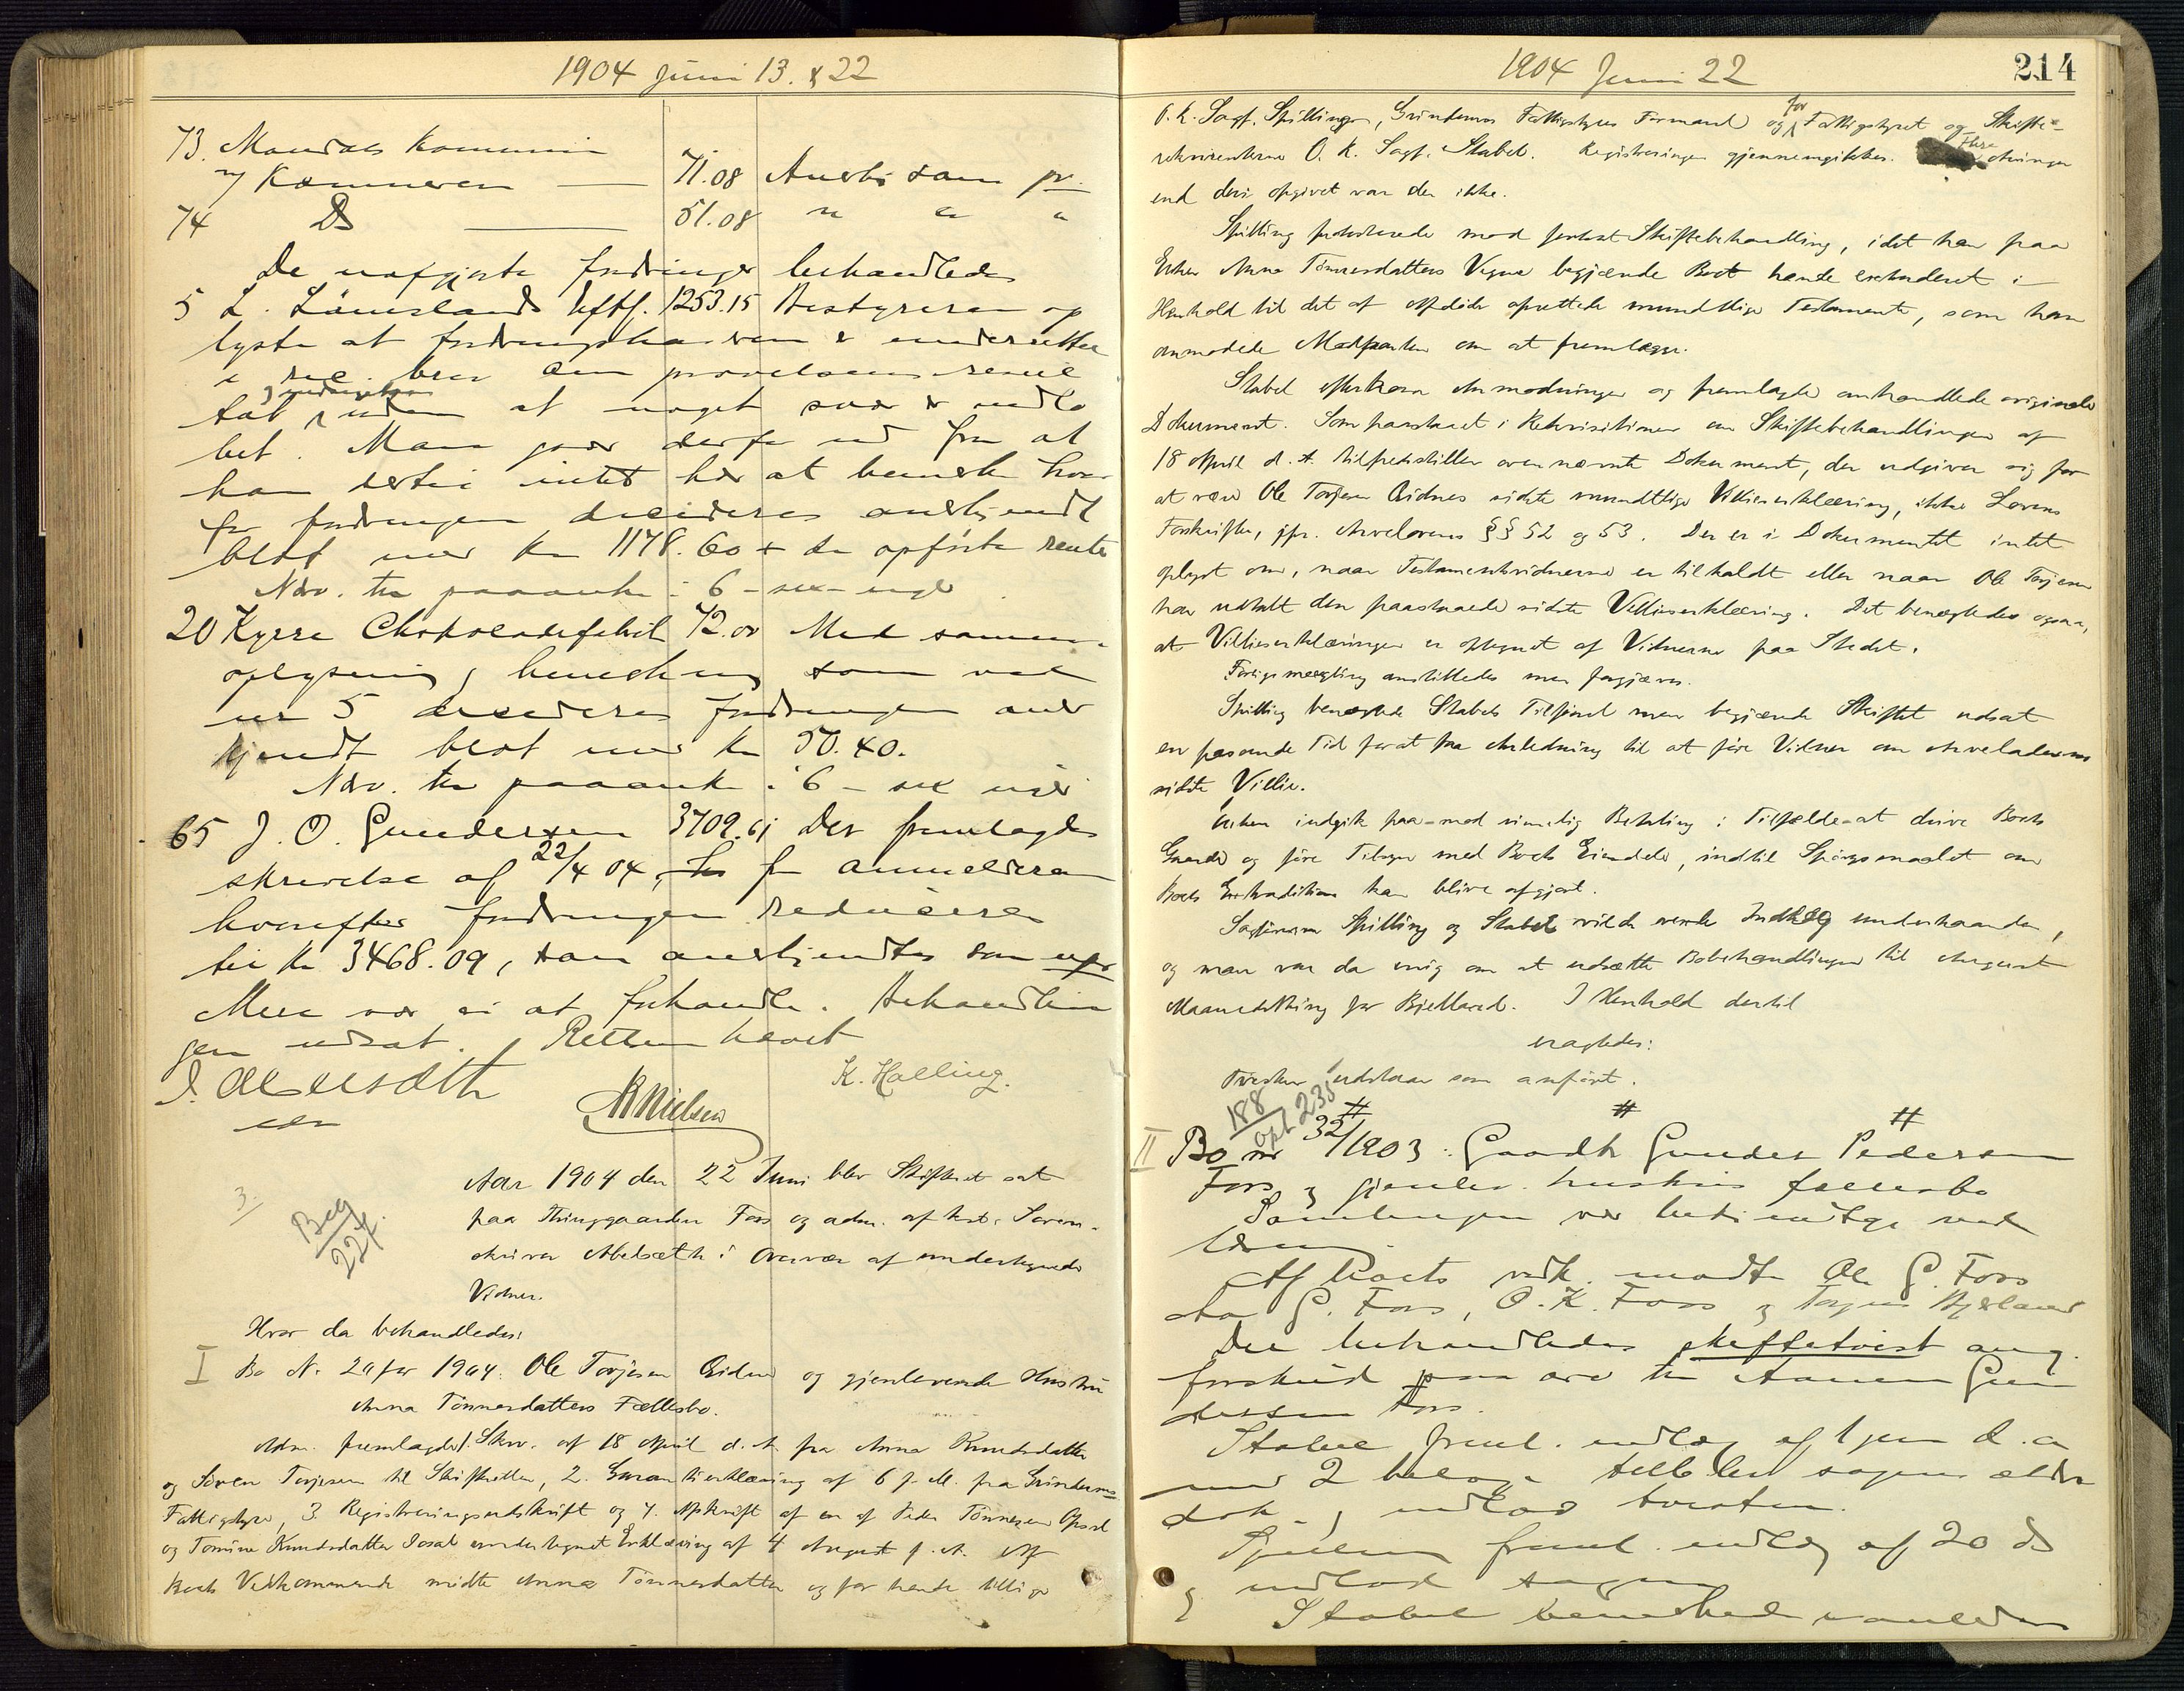 1904 Juni 13. & 22
73. Mandals Kommune
v/ Kæmneren — 71.08 Anerkj. som pr.
74 Do — 51.08 " " "
De uafgjorte fordringer behandledes
5 L. Löueslands Eftf. 1253.15 Bestyreren op
lyste at fordringshaveren er underrettet
i rec. brev om prøvelsens resul
tat uden at noget svar er indlø
bet. Man gaar derfor ud fra at
han hertil intet har at bemerke hvor
for fordringen decideres anerkjendt
blot med kr 1178.60 + den opførte rente
Növ. til paaanke: 6 – sex – uger
20 Kysse Chokoladefabrik 72.00 Med samme
oplysning og bemerkning som ved
nr 5 decideres fordringen aner
kjendt blot med kr 50.40.
Növ. til paaanke: 6 – sex uger
65 J. O. Gundersen 3709.61 Der fremlagdes
skrivelse af 22/4 04, fra anmelderen
hvorefter fordringen reduceres
til kr 3468.09, som anerkjendtes som upr
Mere var ei at forhandle. Behandlin
gen udsat. Retten hævet
J. Abelsæth
AR Nielsen
K. Halling.
3.
Beg
224.
Aar 1904 den 22 Juni blev Skifteret sat
paa Thinggaarden Foss og adm. af kst. Soren-
skriver Abelsæth i Overvær af undertegnede
Vidner.
Hvor da behandledes:
I Bo N. 20 for 1904: Ole Torjesen Eidnes og gjenlevende Hustru
Anna Tønnesdatters Fællesbo.
Adm. fremlagde 1. Skriv. af 18 April d. A. fra Anna Knudsdatter
og Søren Torjesen til Skifteretten, 2. Garantierklæring af 6 f. M. fra Grindems
Fattigstyre, 3. Registreringsudskrift og 4. Afskrift af en af Peder Tønnesen Opsal
og Tomine Knudsdatter Josal undertegnet Erklæring af 4 August f. A. Af
Boets Vedkommende mødte Anna Tønnesdatter og for hende tillige
1904 Juni 22
214
O. R. Sagf. Spilling, Grindems Fattigstyres Formand og for Fattigstyret og Skifte-
rekvirenterne O. R. Sagf. Stabel. Registreringen gjennemgikkes. Flere Arvinger
end deri opgivet var der ikke.
Spilling protesterede mod fortsat Skiftebehandling, idet han paa
Enken Anna Tønnesdatters Vegne begjærede Boet hende extraderet i
Henhold til det af Afdøde oprettede mundtlige Testamente, som han
anmodede Modparten om at fremlægge.
Stabel efterkom Anmodningen og fremlagde omhandlede originale
Dokument. Som paastaaet i Rekvisitionen om Skiftebehandlingen af
18 April d. A. tilfredsstiller ovennævnte Dokument, der udgiver sig for
at være Ole Torjesen Eidnes sidste mundtlige Villieserklæring, ikke Lovens
Forskrifter, jfr. Arvelovens §§ 52 og 53. Der er i Dokumentet intet
oplyst om, naar Testamentsvidnerne er tilkaldt eller naar Ole Torjesen
har udtalt den paastaaede sidste Villieserklæring. Det benægtedes ogsaa,
at Villieserklæringen er optegnet af Vidnerne paa Stedet.
Forligsmægling anstilledes men forgjæves.
Spilling benægtede Stabels Tilførsel men begjærede Skiftet udsat
en passende Tid for at faa Anledning til at føre Vidner om Arveladerens
sidste Villie.
Enken indgik paa – mod rimelig Betaling i Tilfælde – at drive Boets
Gaard og føre Tilsyn med Boets Eiendele, indtil Spørgsmaalet om
Boets Extradition kan blive afgjort.
Sagførerne Spilling og Stabel vilde vexle Indlæg underhaanden,
og man var da enig om at udsætte Bobehandlingen til August
Maanedsthing for Bjelland. I Henhold dertil
eragtedes:
Tvisten udstaar som anført.
188
opt 235
# # #
II Bo nr 32/1903: Gaardbr Gunder Pedersen
Foss og gjenlev. hustrus fællesbo
Samlingen var bekjendtgj. ved
læsning.
Af Boets vedk. mødte Ole G. Foss
G. Foss, O. K. Foss og Torjus Hjelland
Der behandledes skiftetvist ang.
forskud paa arv til Aanen Gun
dersen Foss.
Stabel freml. indlæg af 1 juni d. a
med 2 bilag tilbelev sagens ældre
dok. og indlod tvisten.
freml. indlæg af 20 ds
og indlod sagen
Stabel bemerkede